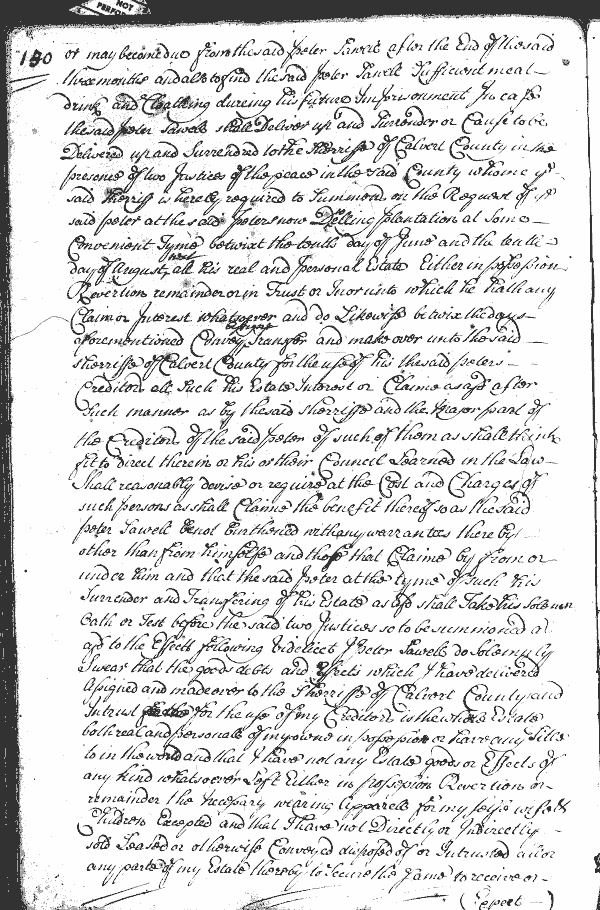 NOT
PERFO
130 or may become due from the said Peter Sawell after the End of the said
three months and also to find the said Peter Sawell Sufficient meat
drink and Cloathing dureing his future Imprisonment In case
the said Peter Sawell shall Deliver up and Surrender or Cause to be
Delivered up and Surrendred to the Sherriffe of Calvert County in the
presence of two Justices of the peace in the said County whome ye
said Sherriff is hereby required to Summond on the Request of ye
said Peter at the said Peters now Dwelling plantation at Some
Convenient Tyme betwixt the tenth day of June and the tenth
day of August next all his real and personal Estate Either in possession
Revertion remainder or in Trust or In or unto which he hath any
Claim or Interest whatsoever and do Likewise betwixt the days
aforementioned Convey assigne Transfer and make over unto the said
Sherriffe of Calvert County for the use of his the said Peters
Creditors all Such his Estate Interest or Claime as afd after
Such manner as by the said Sherriffe and the Major part of
the Creditors of the said Peter of such of them as shall think
fit to direct therein or his or their Council Learned in the Law
Shall reasonably devise or require at the Cost and Charges of
such persons as shall Claime the benefit thereof so as the said
Peter Sawell be not burthened with any warrantees thereby
other than from himselfe and those that Claime by from or
under him and that the said Peter at the tyme of Such his
Surrender and Transfering of his Estate as afd shall Take his Solemn
Oath or Test before the said two Justices so to be summoned as
afd to the Effect following videlicet I Peter Sawell do Solemnly
Swear that the goods debts and Effects which I have delivered
Assigned and made over to the Sherriffe of Calvert County and
Intrust for the use of my Creditors is the whole Estate
both real and personale of my owne in possession or have any Title
to in the world and that I have not any Estate goods or Effects of
any kind whatsoever Left Either in possession Revertion or
remainder the necessary wearing Apparell for my selfe wife &
Children Excepted and that I have not Directly or Indirectly
sold Leased or otherwise Conveyed disposed of or Intrusted all or
any parte of my Estate thereby to Secure the Same to receive or
(Expect